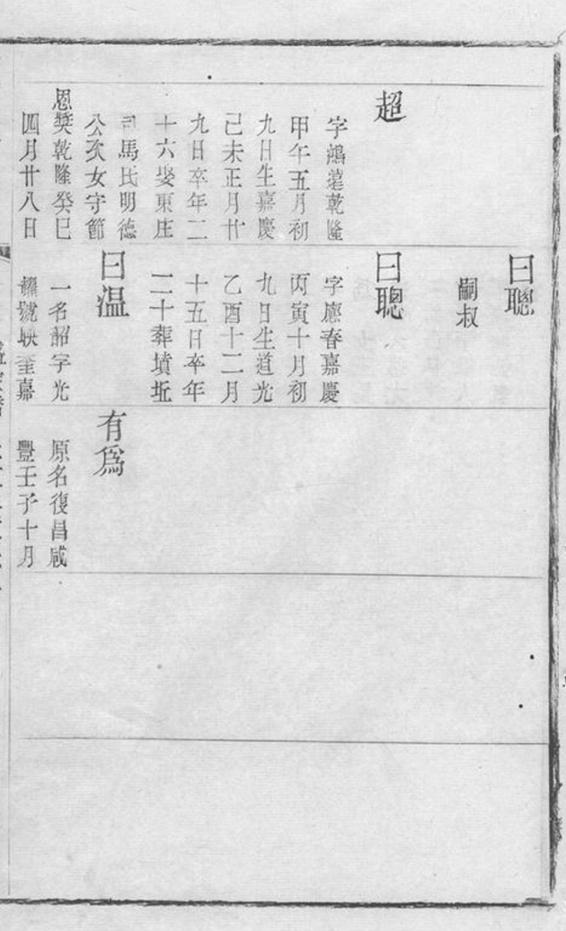 超
字鴻墓乾隆
甲午五月初
九日生嘉慶
己未正月廿
九日卒年二
十六娶東庄
司馬氏明德
公次女守節
恩獎乾隆癸巳
四月廿八日
曰聰
嗣叔
曰聰
字應春嘉慶
丙寅十月初
九日生道光
乙酉十二月
十五日卒年
二十葬墳坵
曰溫
一名韶字光
號映奎嘉
有為
原名復昌咸
豐壬子十月